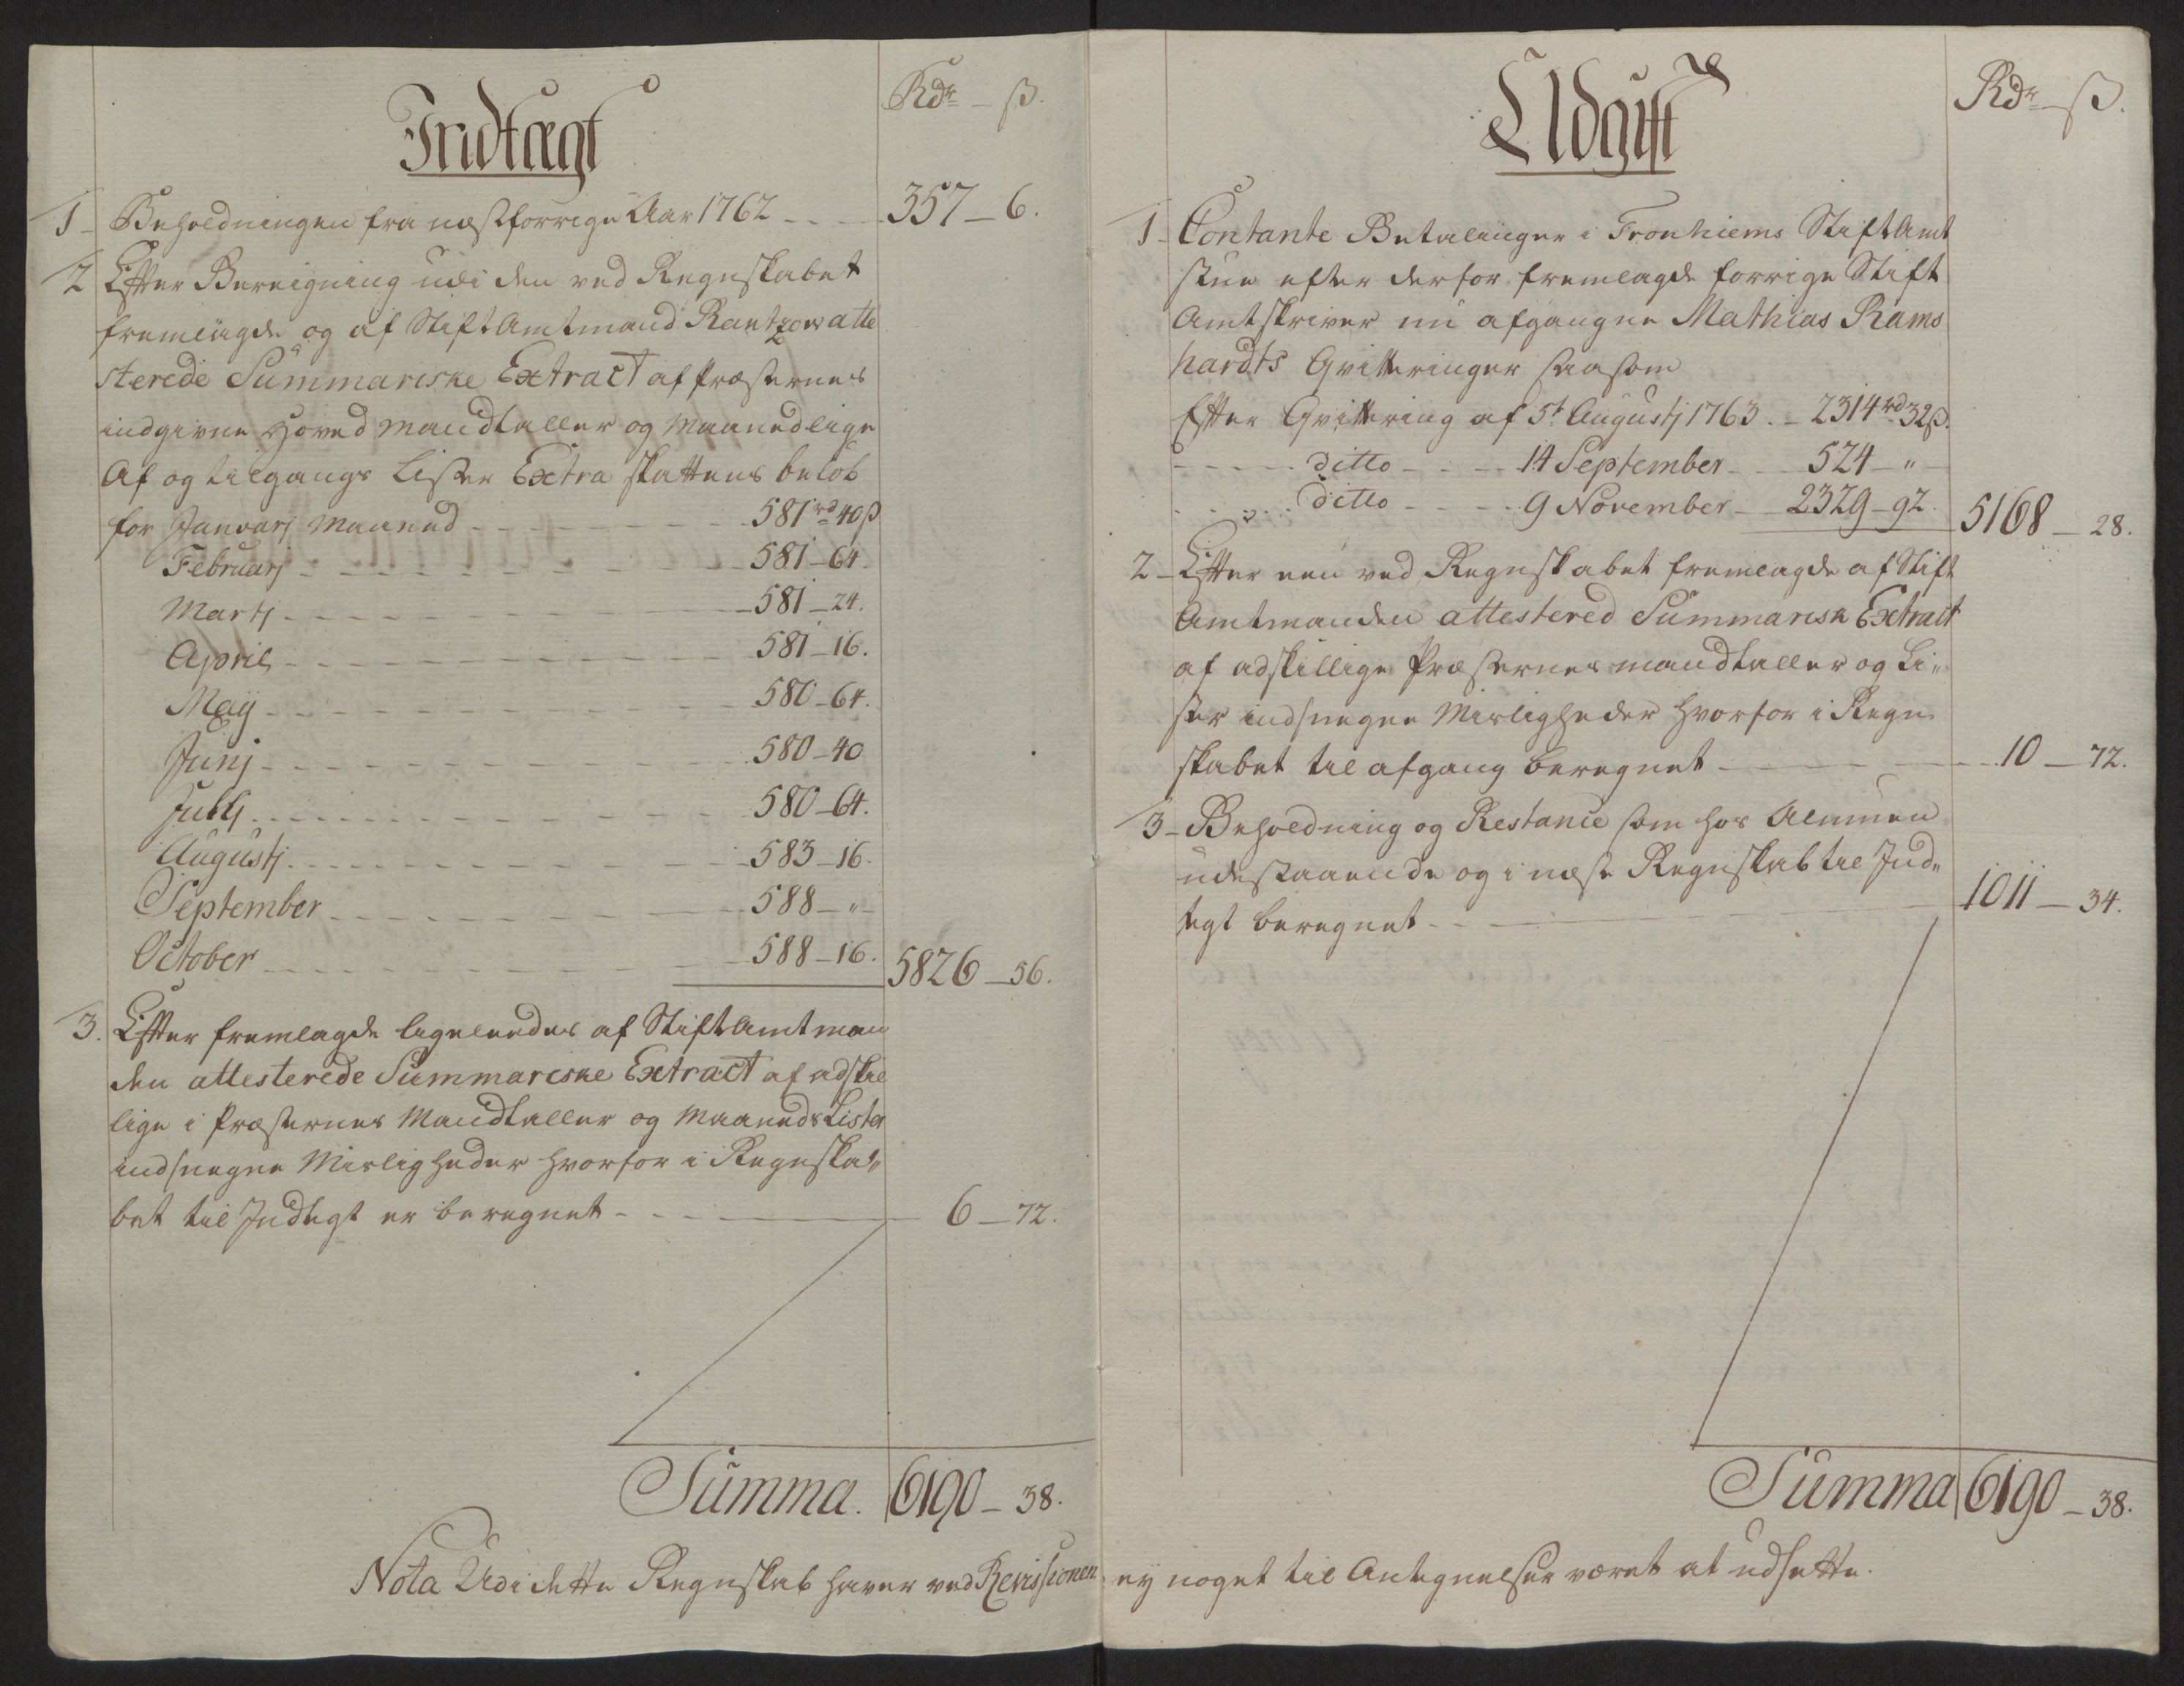 Indtægt
Rdr - ß.
1 - Beholdningen fra næstforrige Aar 1762 - - - 357 - 6.
2 Efter Beregning udi den ved Regnskabet
fremlagde og af StiftAmtmand Rantzow atte
sterede Summariske Extract af Præsternes
indgivne Hoved Mandtaller og Maanedlige
Af og tilgangs Lister Extra skattens beløb
for Januarj Maaned - - - 581 rd 40 ß
Februarj - - - 581 - 64.
Martj - - - 581 - 24.
April - - - 581 - 16.
Maij - - - 580 - 64.
Junj - - - 580 - 40
Julij - - - 580 - 64.
Augustj - - - 583 - 16.
September - - - 588 - "
October - - - 588 - 16. 5826 - 56.
3. Efter fremlagde ligeledes af StiftAmtman
den attesterede Summariske Extract af adskil
lige i Præsternes Mandtaller og Maaneds Lister
indsnegne Misligheder hvorfor i Regnska„
bet til Indtegt er beregnet - - - 6 - 72.
Summa. 6190 - 38.
Nota Udi dette Regnskab haver ved Revissionen
Udgift
Rdr - ß.
1 - Contante Betalinger i Tronhiems StiftAmt
stue efter derfor fremlagde forrige Stift
Amtskriver nu afgangne Mathias Rams
hardts Qvitteringer saasom
Efter Qvittering af 5t Augustj 1763. - 2314 rd 32 ß.
- - - ditto - - - 14 September - - 524 - "
- - - ditto - - - 9 November - - 2329 - 92. 5168 - 28.
2 - Efter een ved Regnskabet fremlagde af Stift
Amtmanden attestered Summarisk Extract
af adskillige Præsternes mandtaller og Li„
ster indsnegne Misligheder hvorfor i Regn
skabet til afgang beregnet - - - 10 - 72.
3 - Beholdning og Restance som hos Almuen
udestaaende og i næste Regnskab til Ind„
tegt beregnet - - - 1011 - 34.
Summa 6190 - 38.
ey noget til Antegnelser været at udsette.